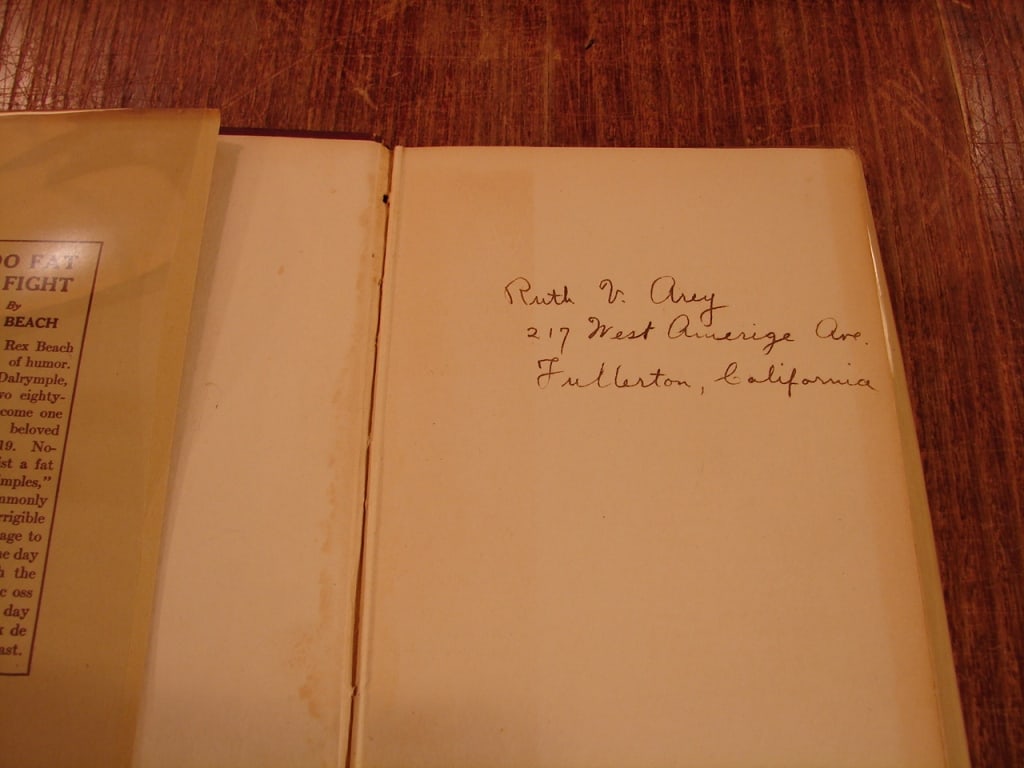 OO FAT
FIGHT
By
BEACH
Rex Beach
of humor.
Dalrymple,
vo eighty-
come one
beloved
19. No-
ist a fat
imples,"
mmonly
rrigible
age to
ne day
h the
c oss
day
x de
ast.
Ruth V. Arey
217 West Amerige Ave.
Fullerton, California